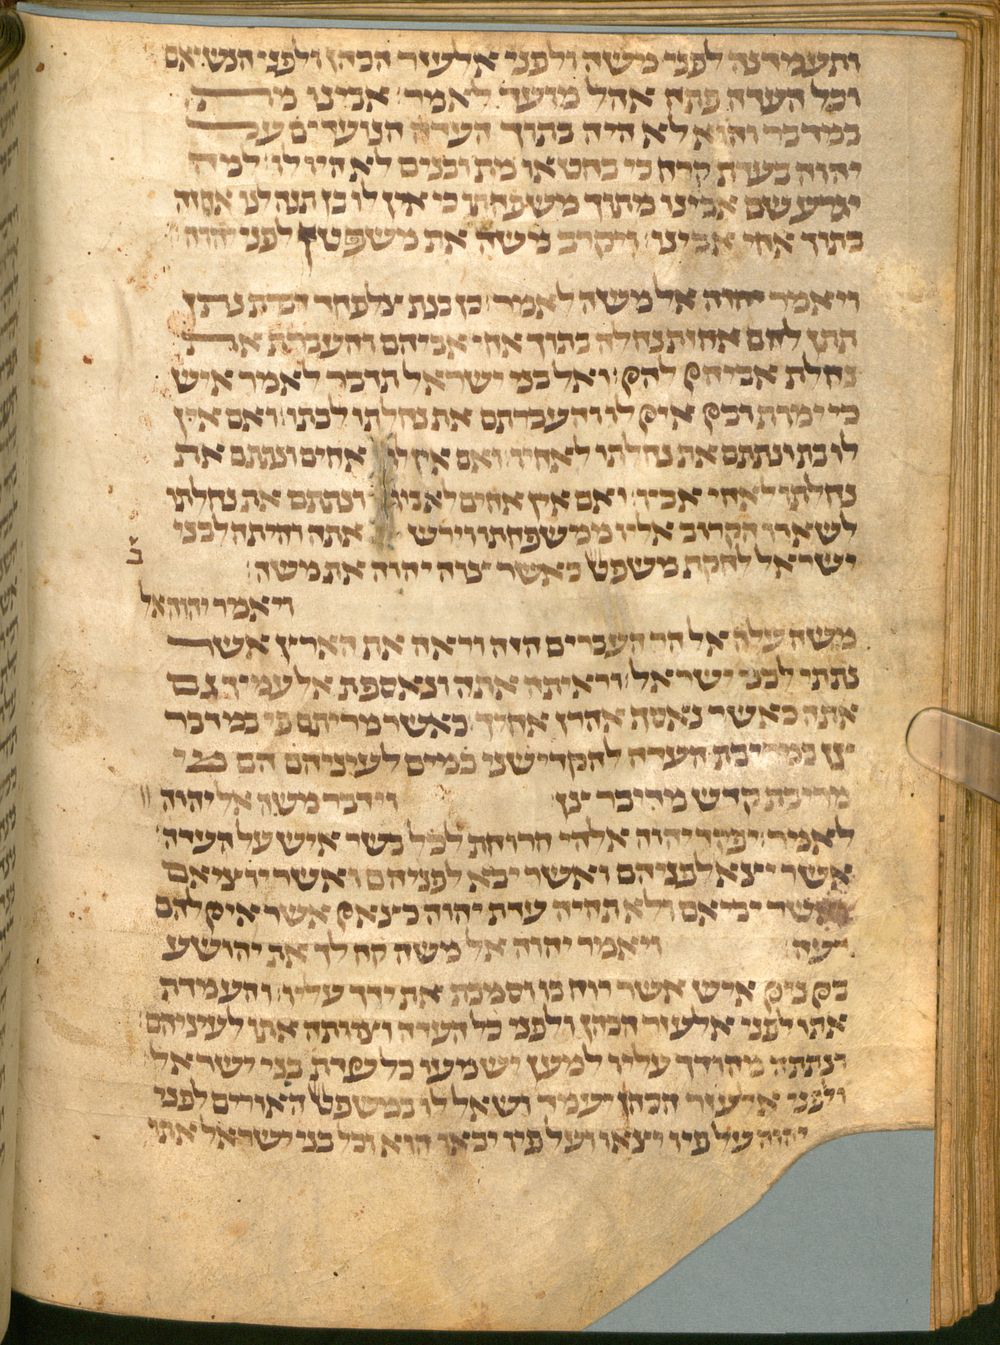 ותעמדנה לפני משה ולפני אלעזר הכהן ולפני הנשיאם
וכל העדה פתח אהל מועד לאמר׃ אבינו מת
במדבר והוא לא היה בתוך העדה הנועדים על
יהוה בעדת קרח כי בחטאו מת ובנים לא היו לו׃ למה
יגרע שם אבינו מתוך משפחתו כי אין לו בן תנה לנו אחזה
בתוך אחי אבינו׃ ויקרב משה את משפטן לפני יהוה׃
ויאמר יהוה אל משה לאמר׃ כן בנת צלפחד דברת נתן
תתן להם אחזת נחלה בתוך אחי אביהם והעברת את
נחלת אביהן להן׃ ואל בני ישראל תדבר לאמר איש
כי ימות ובן אין לו והעברתם את נחלתו לבתו׃ ואם אין
לו בת ונתתם את נחלתו לאחיו׃ ואם אין לו אחים ונתתם את
נחלתו לאחי אביו׃ ואם אין אחים לאביו ונתתם את נחלתו
לשארו הקרוב אליו ממשפחתו וירש אתה והיתה לבני
ישראל לחקת משפט כאשר צוה יהוה את משה׃
ויאמר יהוה אל
משה עלה אל הר העברים הזה וראה את הארץ אשר
נתתי לבני ישראל׃ וראיתה אתה ונאספת אל עמיך גם
אתה כאשר נאסף אהרן אחיך׃ כאשר מריתם פי במדבר
צן במריבת העדה להקדישני במים לעיניהם הם מי
מריבת קדש מדבר צן׃ וידבר משה אל יהוה
לאמר׃ יפקד יהוה אלהי הרוחת לכל בשר איש על העדה׃
אשר יצא לפניהם ואשר יבא לפניהם ואשר יוציאם
ואשר יביאם ולא תהיה עדת יהוה כצאן אשר אין להם
רעה׃ ויאמר יהוה אל משה קח לך את יהושע
בן נון איש אשר רוח בו וסמכת את ידך עליו׃ והעמדת
אתו לפני אלעזר הכהן ולפני כל העדה וצויתה אתו לעיניהם׃
ונתתה מהודך עליו למען ישמעו כל עדת בני ישראל׃
ולפני אלעזר הכהן יעמד ושאל לו במשפט האורים לפני
יהוה על פיו יצאו ועל פיו יבאו הוא וכל בני ישראל אתו